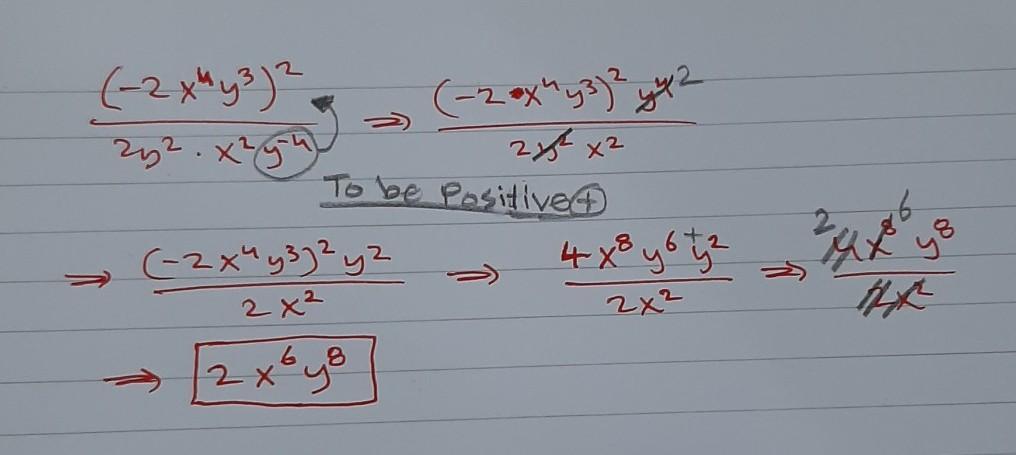 (-2x⁴y³)² / 2y² · x²y⁻⁴ ⇒ (-2·x⁴y³)² y⁴ ² / 2y² x²
To be Positive +
⇒ (-2x⁴y³)² y² / 2x² ⇒ 4x⁸y⁶⁺y² / 2x² ⇒ ²4x⁸ ⁶y⁸ / 2x²
⇒ 2x⁶y⁸